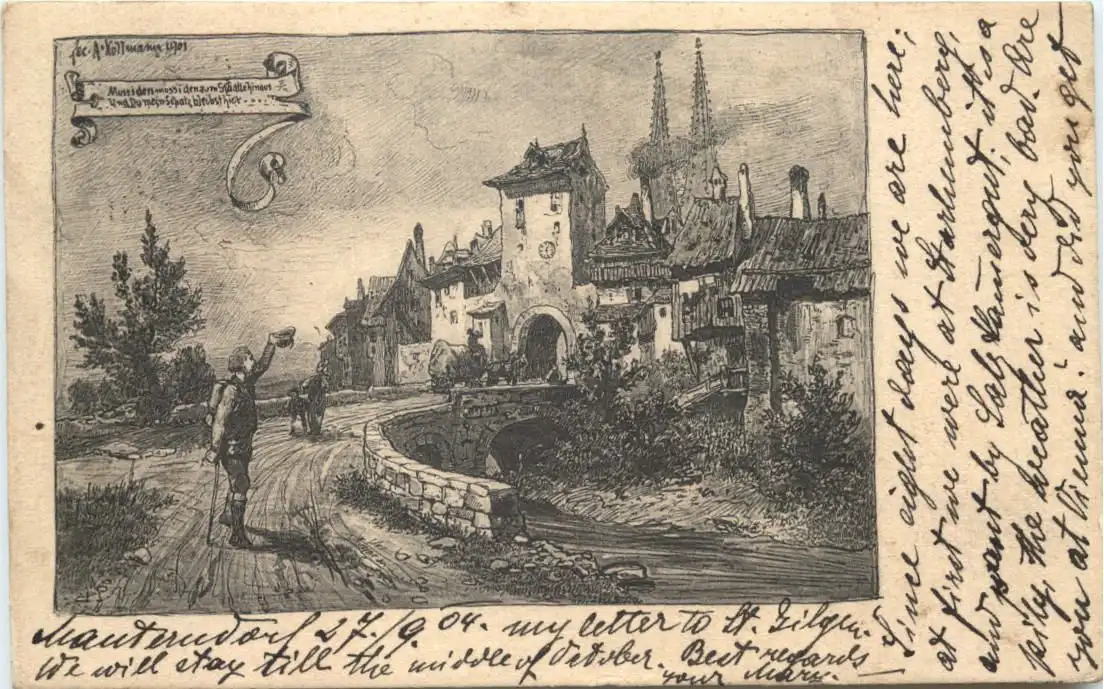 fec. A. Kollmann 1901
Muss i denn muss i denn zum Städtle hinaus
Und Du mein Schatz bleibst hier....
Since eight days we are here;
at first we were at
and by Salz it is a
pity the weather is very bad. Are
you at Vienna? and did you get
Mauterndorf 27./9. 04. my letter to St. Gilgen.
We will stay till the middle of October. Best regards
your Mary.